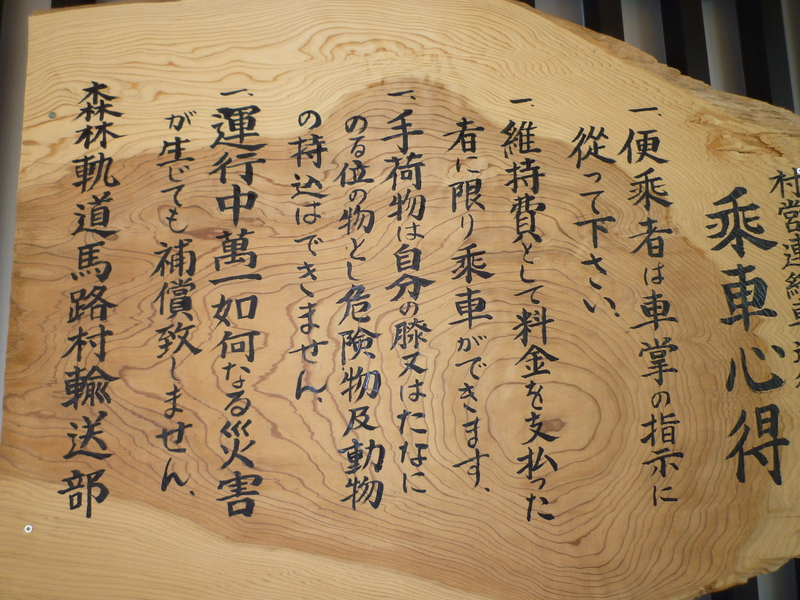 村営連絡車
乗車心得
一、便乗者は車掌の指示に
従って下さい、
一、維持費として料金を支払った
者に限り乗車ができます、
一、手荷物は自分の膝又はたなに
のる位の物とし危険物及動物
の持込はできません、
一、運行中萬一如何なる災害
が生じても補償致しません、
森林軌道馬路村輸送部